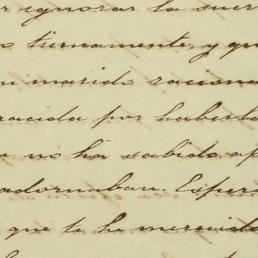 r ignorar la suer
o tiernamente, y que
n marido raciona
racida por haberlo
a no ha sabido ap
adornaban. Esper
que te ha merecido